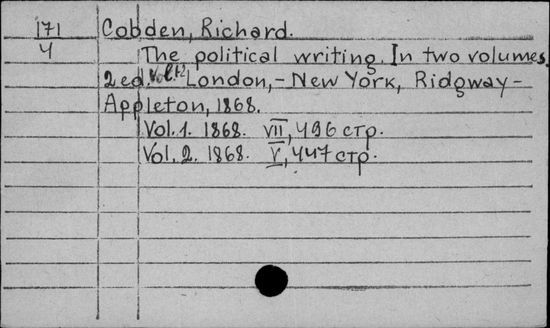 171 Cobden, Richard.
4 The political writing. In two volumes.
2 ed. Vol. 1-2 London, - New York, Ridgway -
Appleton, 1868.
Vol. 1. 1868. VII, 496 стр.
Vol. 2. 1868. V, 447 стр.